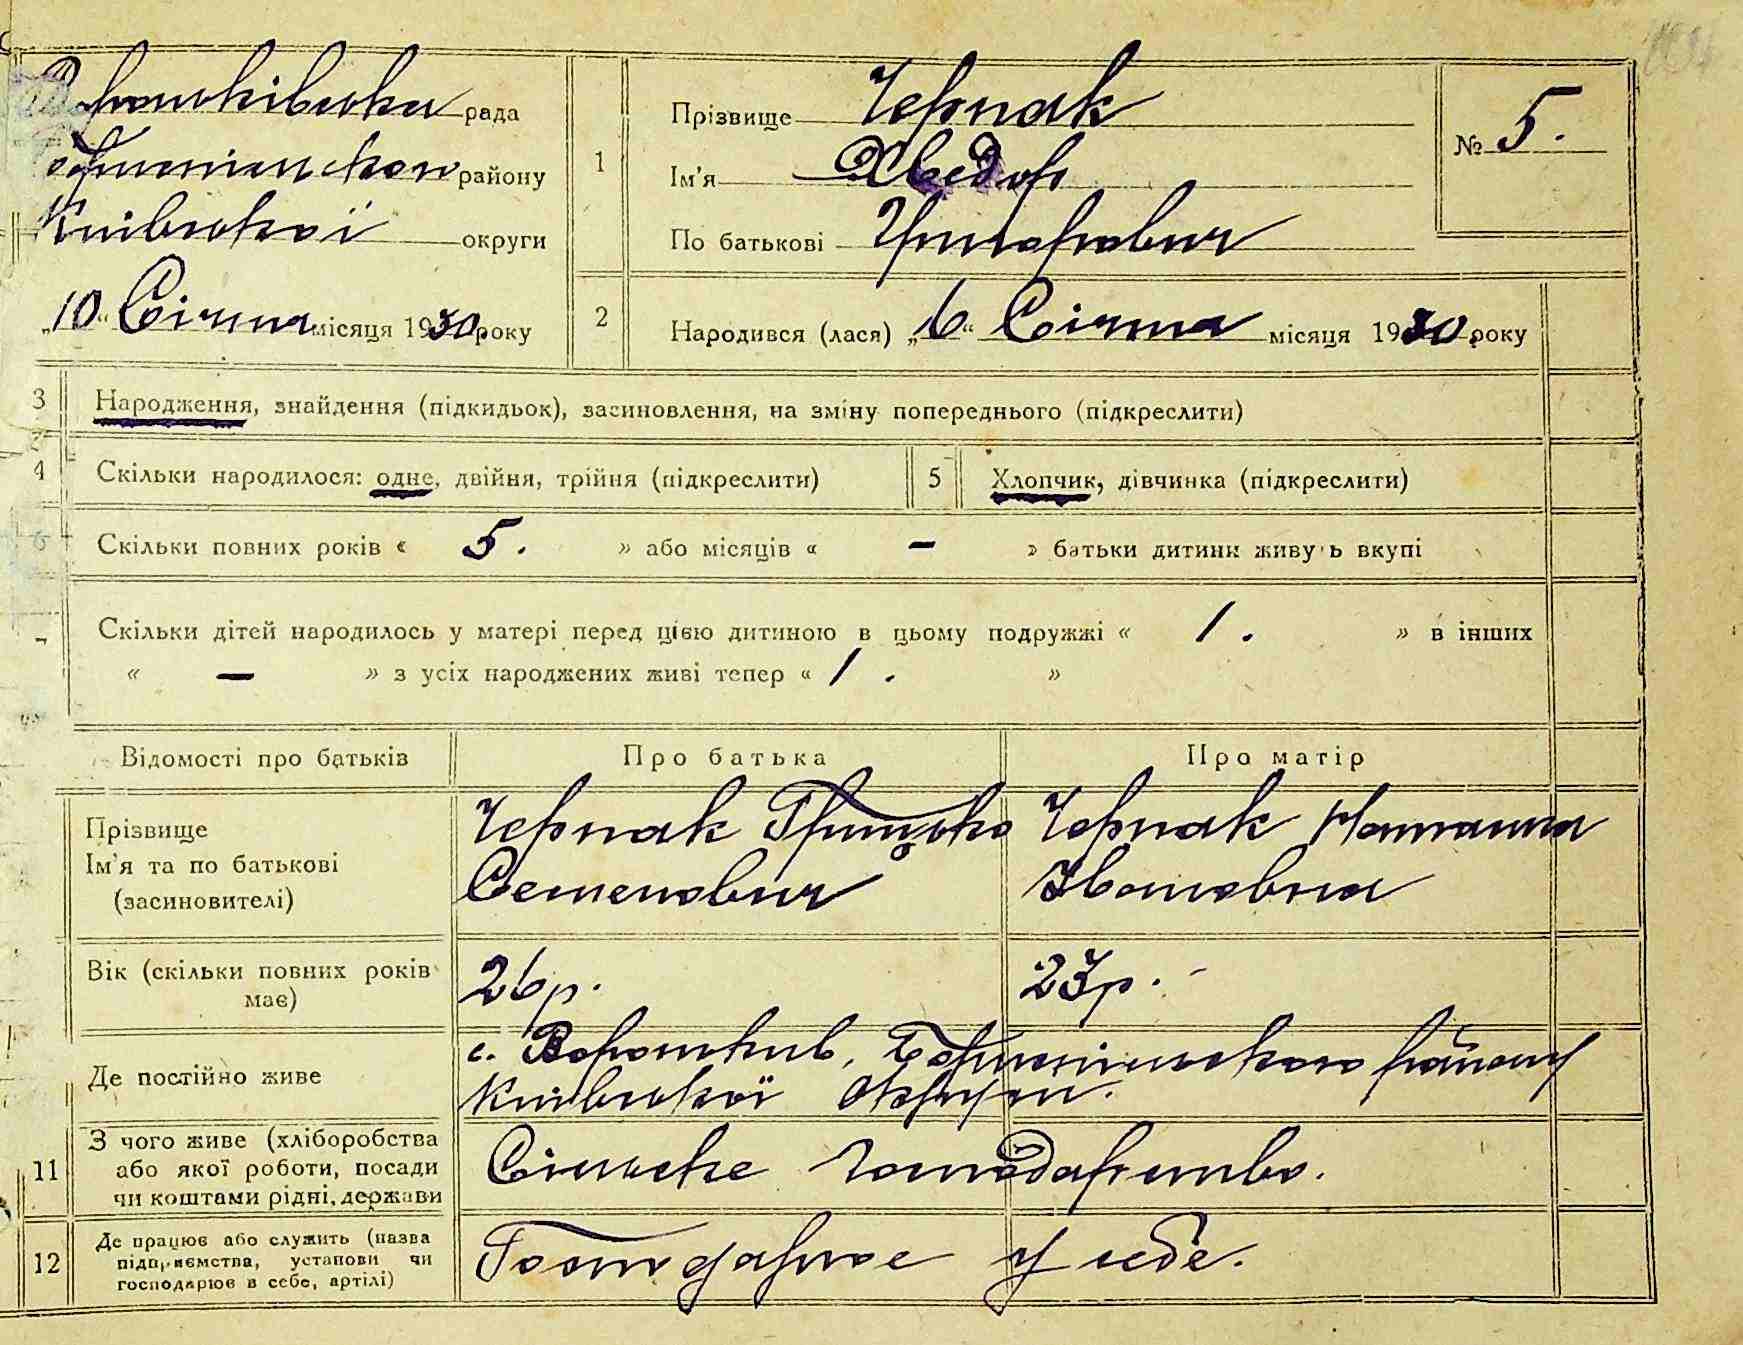 Вороньківська рада
Бориспільського району
Київської округи
„10“ Січня місяця 1930 року
1
Прізвище Черпак
Ім'я Хведор
По батькові Григорович
№ 5.
2
Народився (лася) „6“ Січня місяця 1930 року
3 Народження, знайдення (підкидьок), засиновлення, на зміну попереднього (підкреслити)
4 Скільки народилося: одне, двійня, трійня (підкреслити)
5 Хлопчик, дівчинка (підкреслити)
6 Скільки повних років « 5. » або місяців « - » батьки дитини живуть вкупі
7 Скільки дітей народилось у матері перед цією дитиною в цьому подружжі « 1. » в інших
« - » з усіх народжених живі тепер « 1. »
Відомості про батьків Про батька Про матір
Прізвище
Ім'я та по батькові
(засиновителі)
Черпак Грицько
Семенович
Черпак Наталка
Івановна
Вік (скільки повних років
має)
26 р.
23 р.
Де постійно живе
с. Вороньків, Бориспільського району
Київської Округи.
11 З чого живе (хліборобства
або якої роботи, посади
чи коштами рідні, держави
Сільське господарство.
12 Де працює або служить (назва
підприємства, установи чи
господарює в себе, артілі)
Господарює у себе.